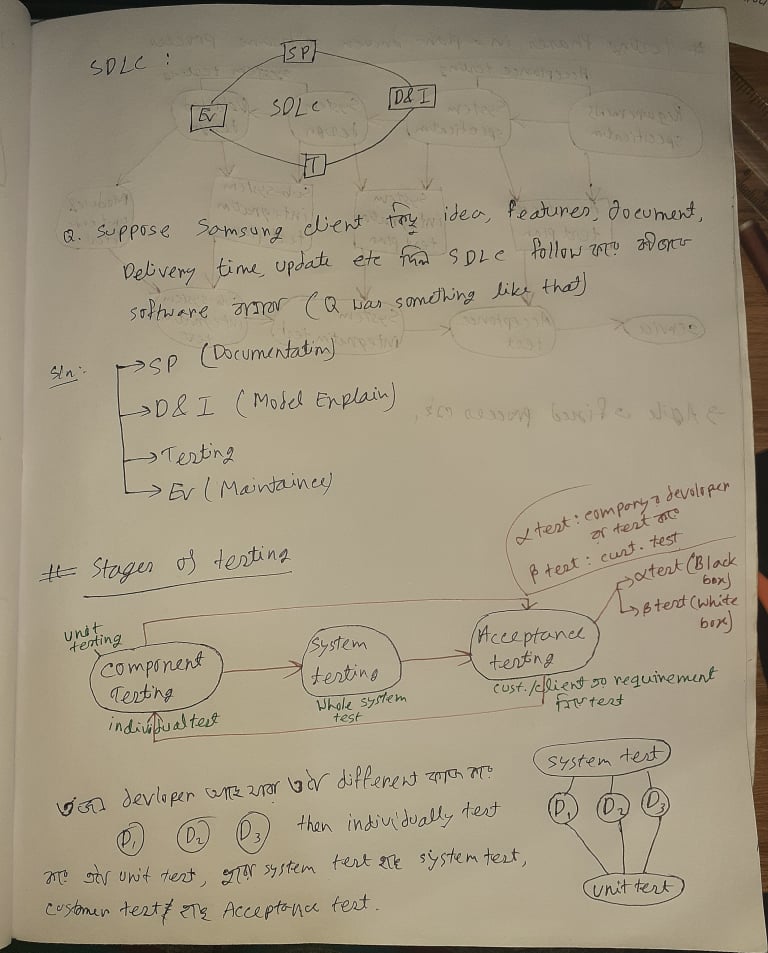 SDLC :
SP
Ev
SDLC
D&I
T
Q. Suppose Samsung client কিছু idea, features, document,
Delivery time, update etc দিল SDLC follow করে কীভাবে
software বানাব (Q was something like that)
Sln:-
→SP (Documentation)
→D&I (Model Enplain)
→Testing
→Ev (Maintaince)
α test : company র devoloper
রা test করে
β test : cust. test
# Stages of testing
→αtest (Black
box)
→βtest (White
box)
unit
testing
Component
Testing
individual test
System
testing
Whole system
test
Acceptance
testing
cust./client এর requirement
নিয়ে test
৩জন devloper আছে যারা ৩টা different কাজ করে
D1 D2 D3 then individually test
করে ওটা unit test, পুরো system test হচ্ছে system test,
customer test হচ্ছে Acceptance test.
system test
D1 D2 D3
unit test